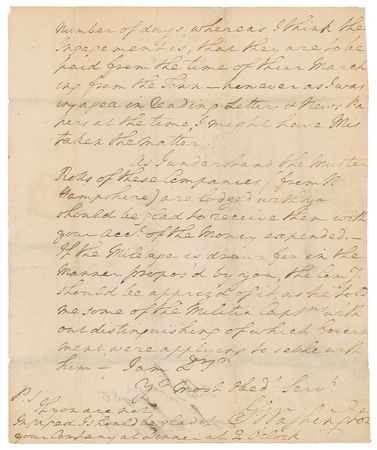 number of days, whereas I think the
Ingagement is, that they are to be
paid from the time of their March
ing from the Town — however as I was
ingaged in reading Letters & News Pa
pers at the time, I might have Mis
taken the matter.
As I understand the Muster
Rolls of these Companies (from N
Hampshire) are lodged with you
should be glad to receive them with
your Acct. of the Money expended. —
If the Mileage is drawn for in the
Manner proposed by you, the Comy.
should be apprized of it, as he told
me some of the Militia Captns. with
out distinguishing of which Govern
ment were applying to settle with
him — I am Dr Sir
Yr. most Obedt. Servt.
Go: Washington
P.S.
If you are not
Ingaged I should be glad of
your Company at Dinner at 2 Oclock